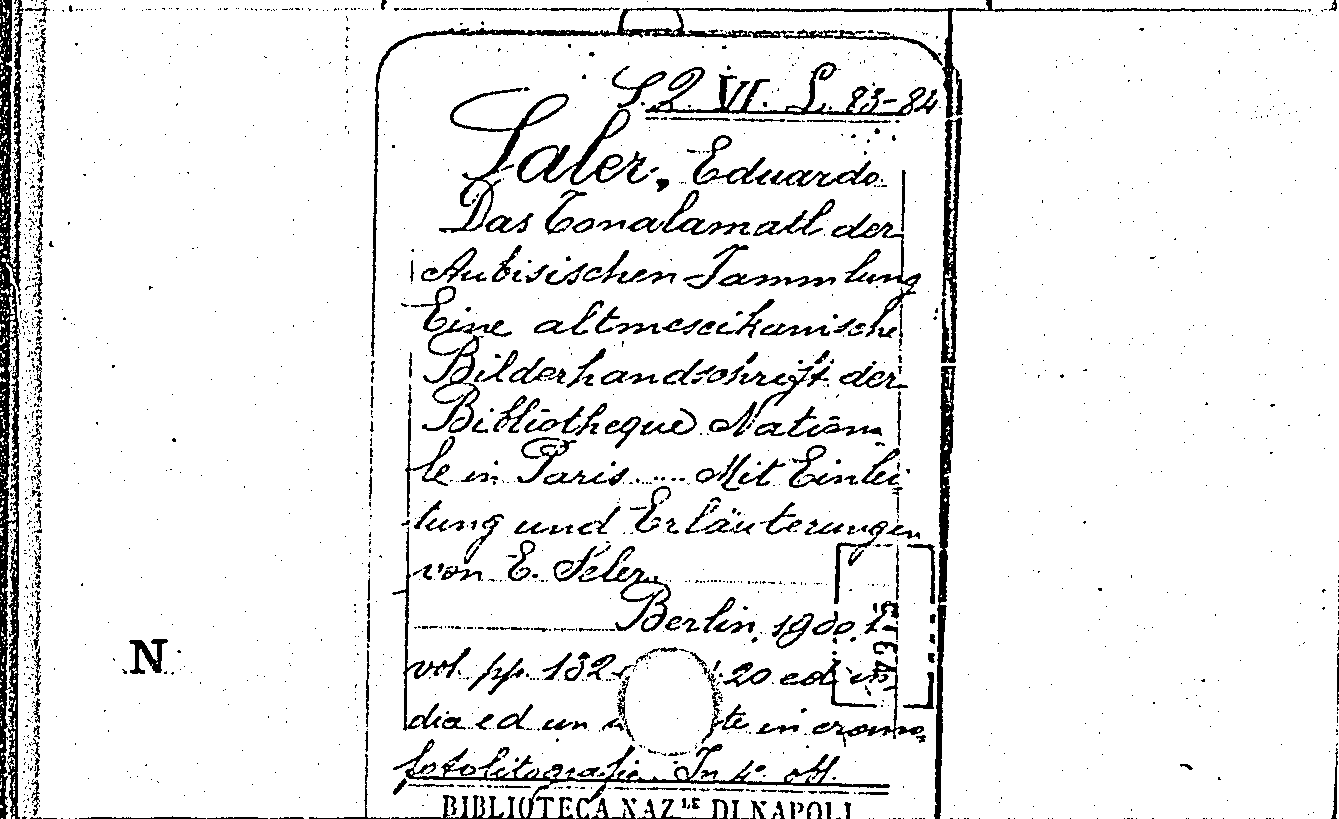 S.Q. VI. L. 83-84
Saler, Eduardo
Das Tonalamatl der
Aubisischen Sammlung
Eine altmescikanische
Bilderhandschrift der
Bibliotheque Nation
le in Paris .... Mit Einlei=
tung und Erläuterungen
von E. Seler
Berlin, 1900, 1
vol. pp. 132 20 ed in
dia ed un te in cromo=
fotolitografie. In 4° ott.
N
BIBLIOTECA NAZLE DI NAPOLI